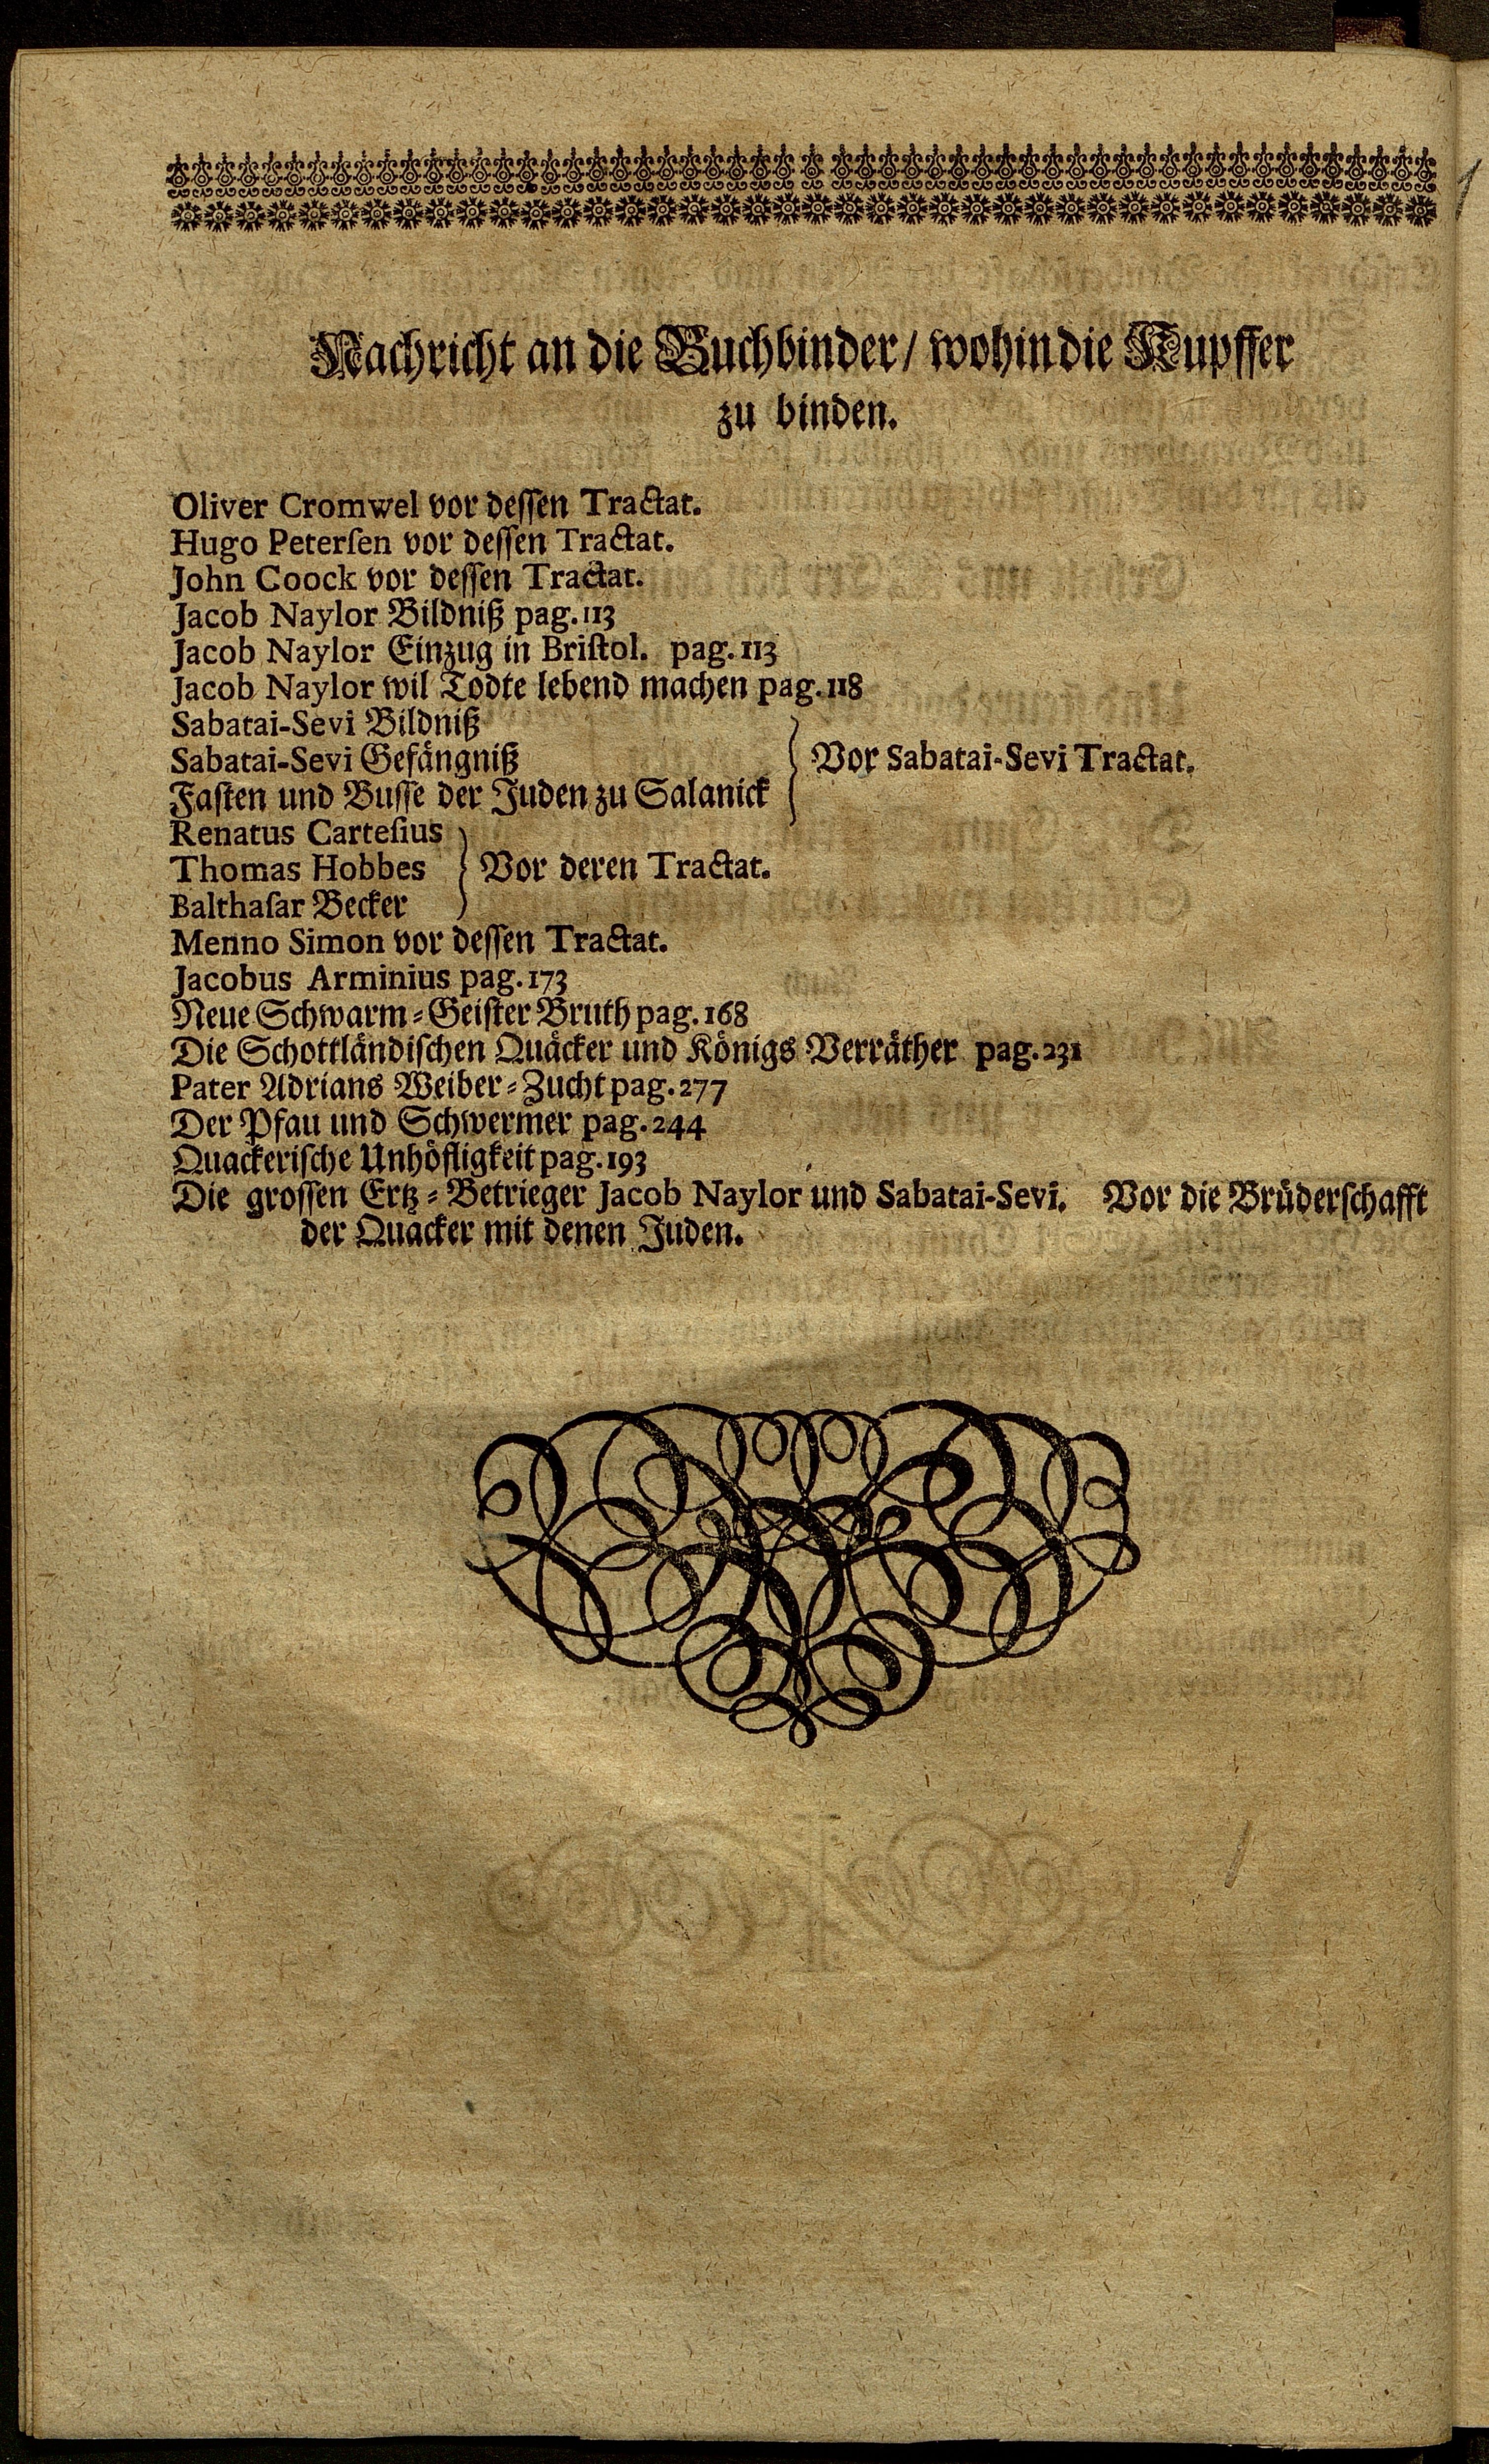 Nachricht an die Buchbinder/ wohin die Kupffer
zu binden.
Oliver Cromwel vor dessen Tractat.
Hugo Peterſen vor deſſen Tractat.
John Coock vor deſſen Tractat.
Jacob Naylor Bildniß pag. 113
Jacob Naylor Einzug in Briſtol. pag. 113
Jacob Naylor wil Todte lebend machen pag. 118
Sabatai-Sevi Bildniß
Sabatai-Sevi Gefängniß } Vor Sabatai-Sevi Tractat.
Faſten und Buſſe der Juden zu Salanick
Renatus Carteſius
Thomas Hobbes } Vor deren Tractat.
Balthaſar Becker
Menno Simon vor deſſen Tractat.
Jacobus Arminius pag. 173
Neue Schwarm-Geiſter Bruth pag. 168
Die Schottländiſchen Quäcker und Königs Verräther pag. 231
Pater Adrians Weiber-Zucht pag. 277
Der Pfau und Schwermer pag. 244
Quackeriſche Unhöfligkeit pag. 193
Die groſſen Ertz-Betrieger Jacob Naylor und Sabatai-Sevi. Vor die Brüderſchafft
der Quacker mit denen Juden.